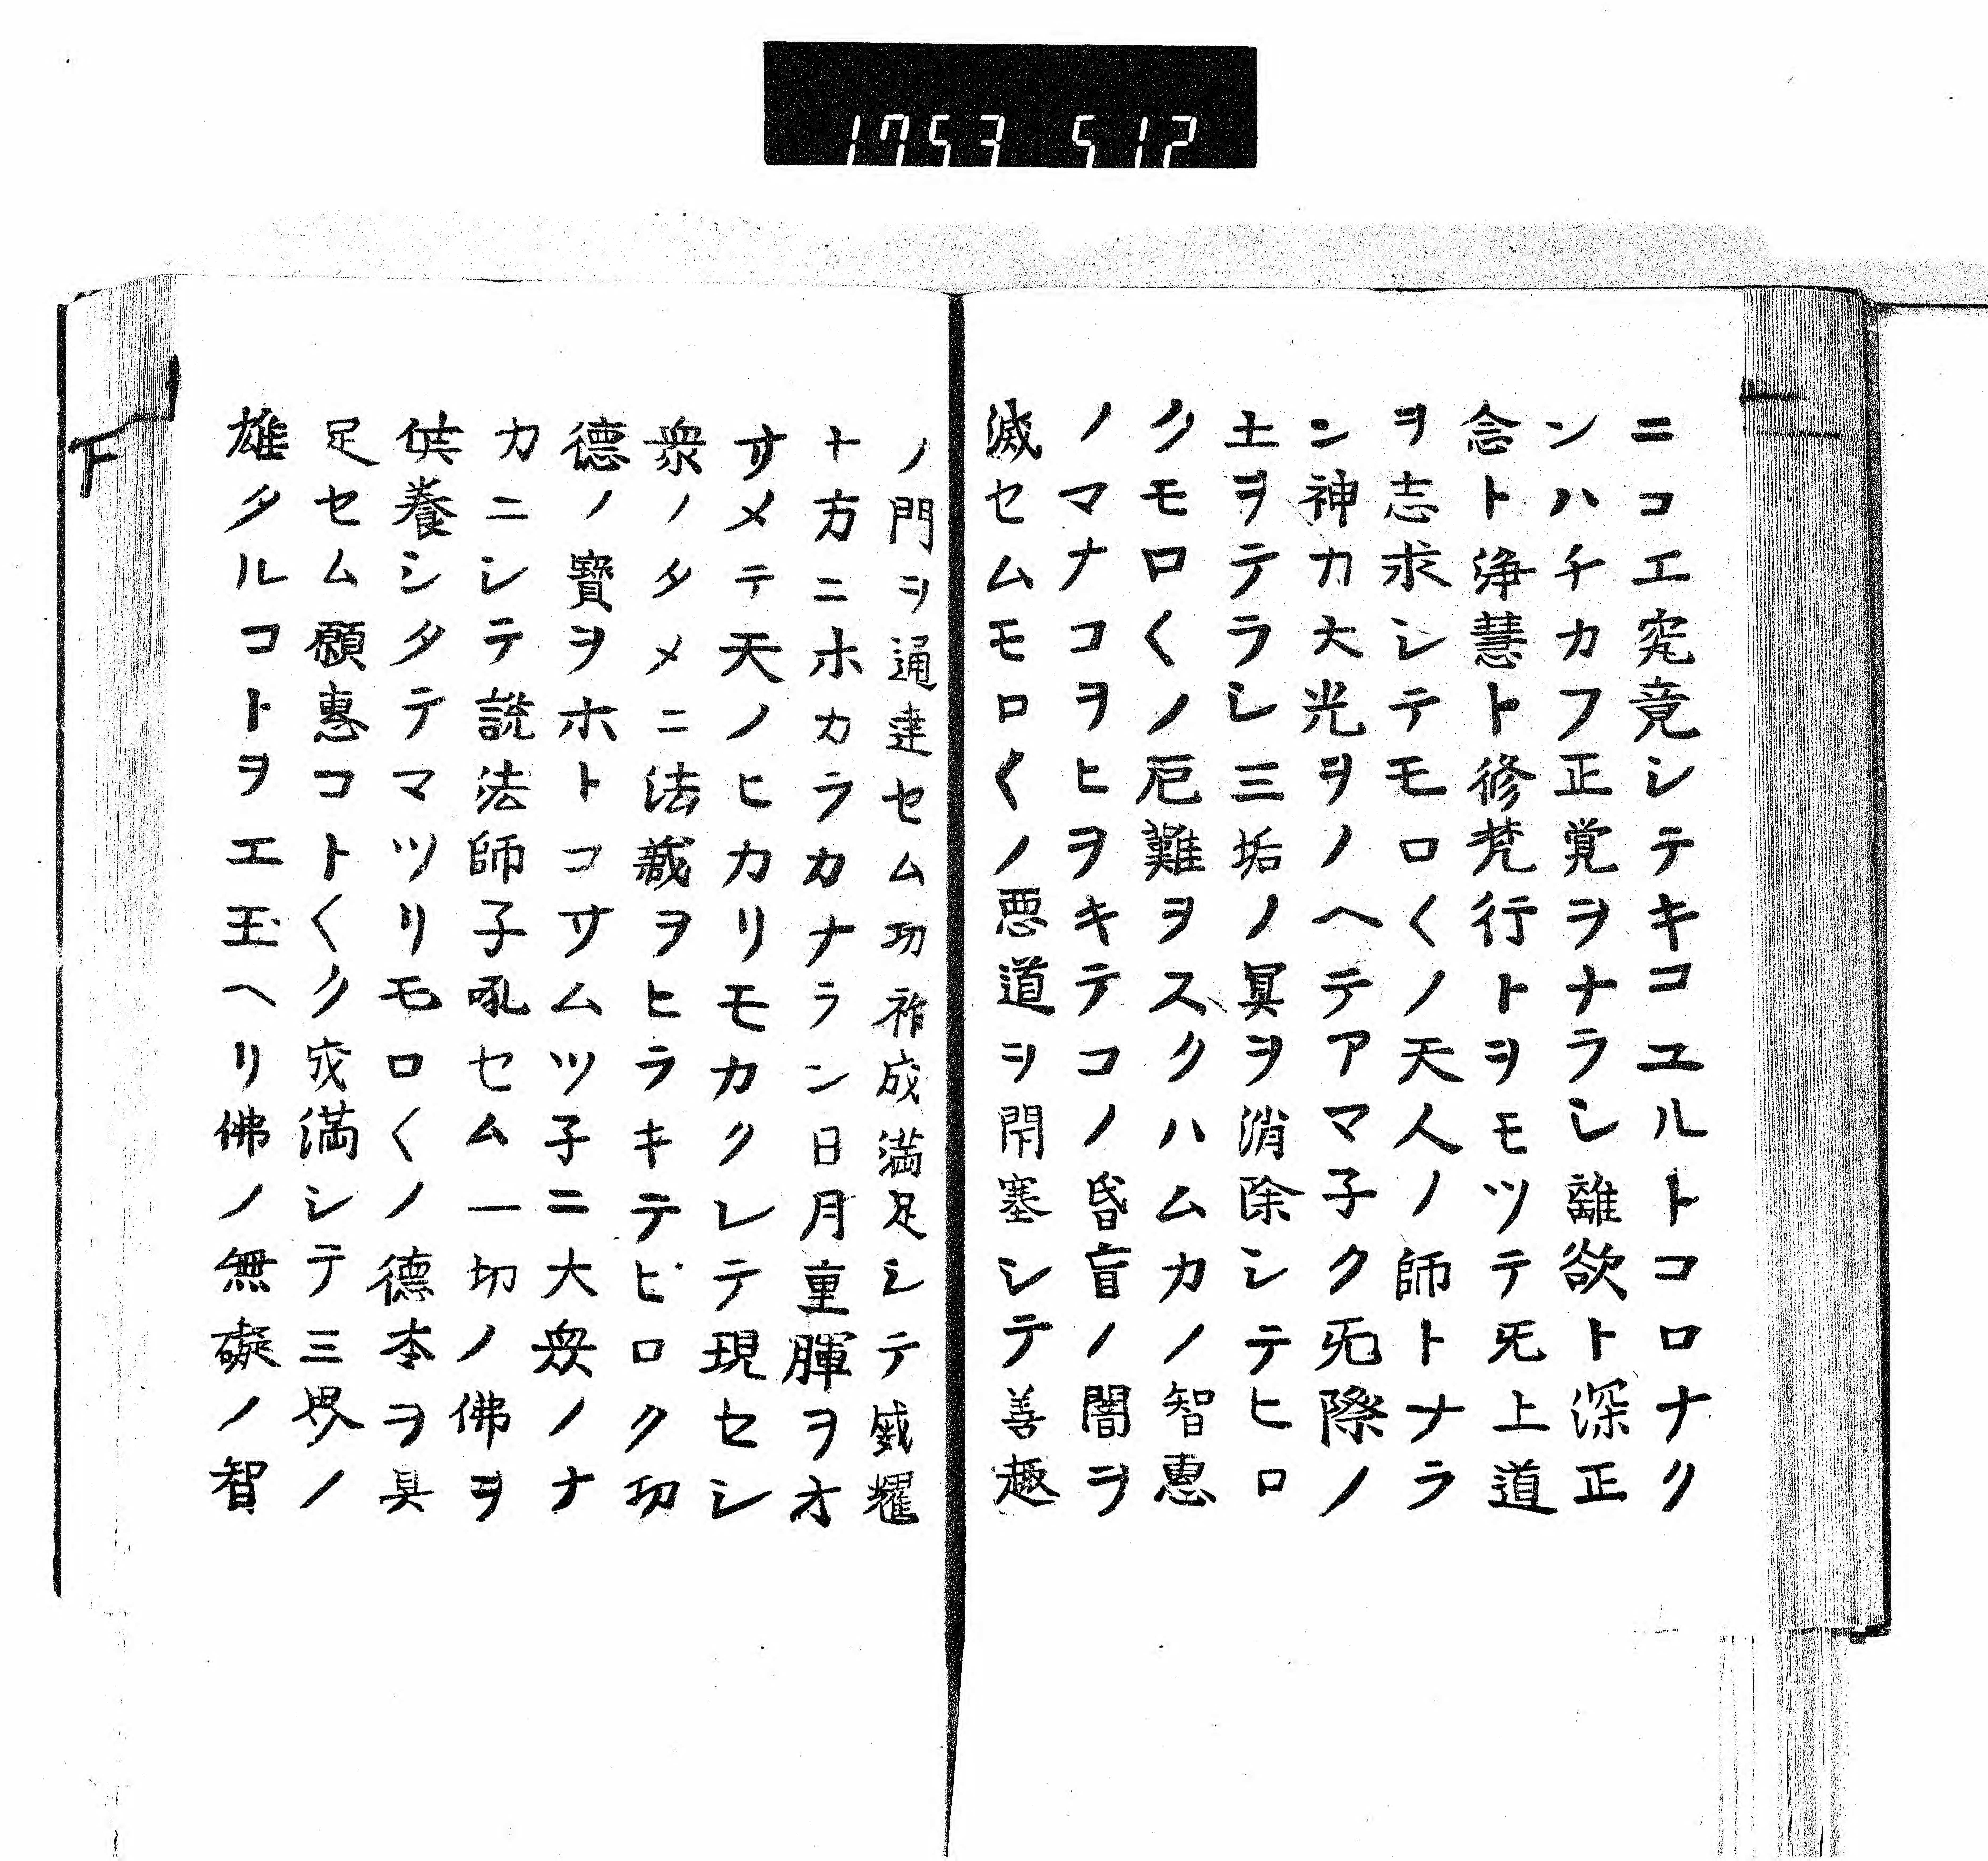 1753 512
ニコエ究竟シテキコユルトコロナク
ンハチカフ正覚ヲナラシ離欲ト深正
念ト浄慧ト修梵行トヲモツテ旡上道
ヲ志求シテモロ〱ノ天人ノ師トナラ
ン神力大光ヲノヘテアマ子ク旡際ノ
土ヲテラシ三垢ノ冥ヲ消除シテヒロ
クモロ〱ノ厄難ヲスクハムカノ智惠
ノマナコヲヒヲキテコノ昏盲ノ闇ヲ
滅セムモロ〱ノ悪道ヲ閇塞シテ善趣
ノ門ヲ通達セム功祚成満足シテ威耀
十方ニホカラカナラン日月重暉ヲオ
サメテ天ノヒカリモカクレテ現セシ
衆ノタメニ法藏ヲヒラキテヒロク功
德ノ寶ヲホトコサムツ子ニ大衆ノナ
カニシテ說法師子吼セム一切ノ佛ヲ
供養シタテマツリモロ〱ノ德本ヲ具
足セム願惠コト〱ク成満シテ三界ノ
雄タルコトヲエ玉ヘリ佛ノ無礙ノ智
下